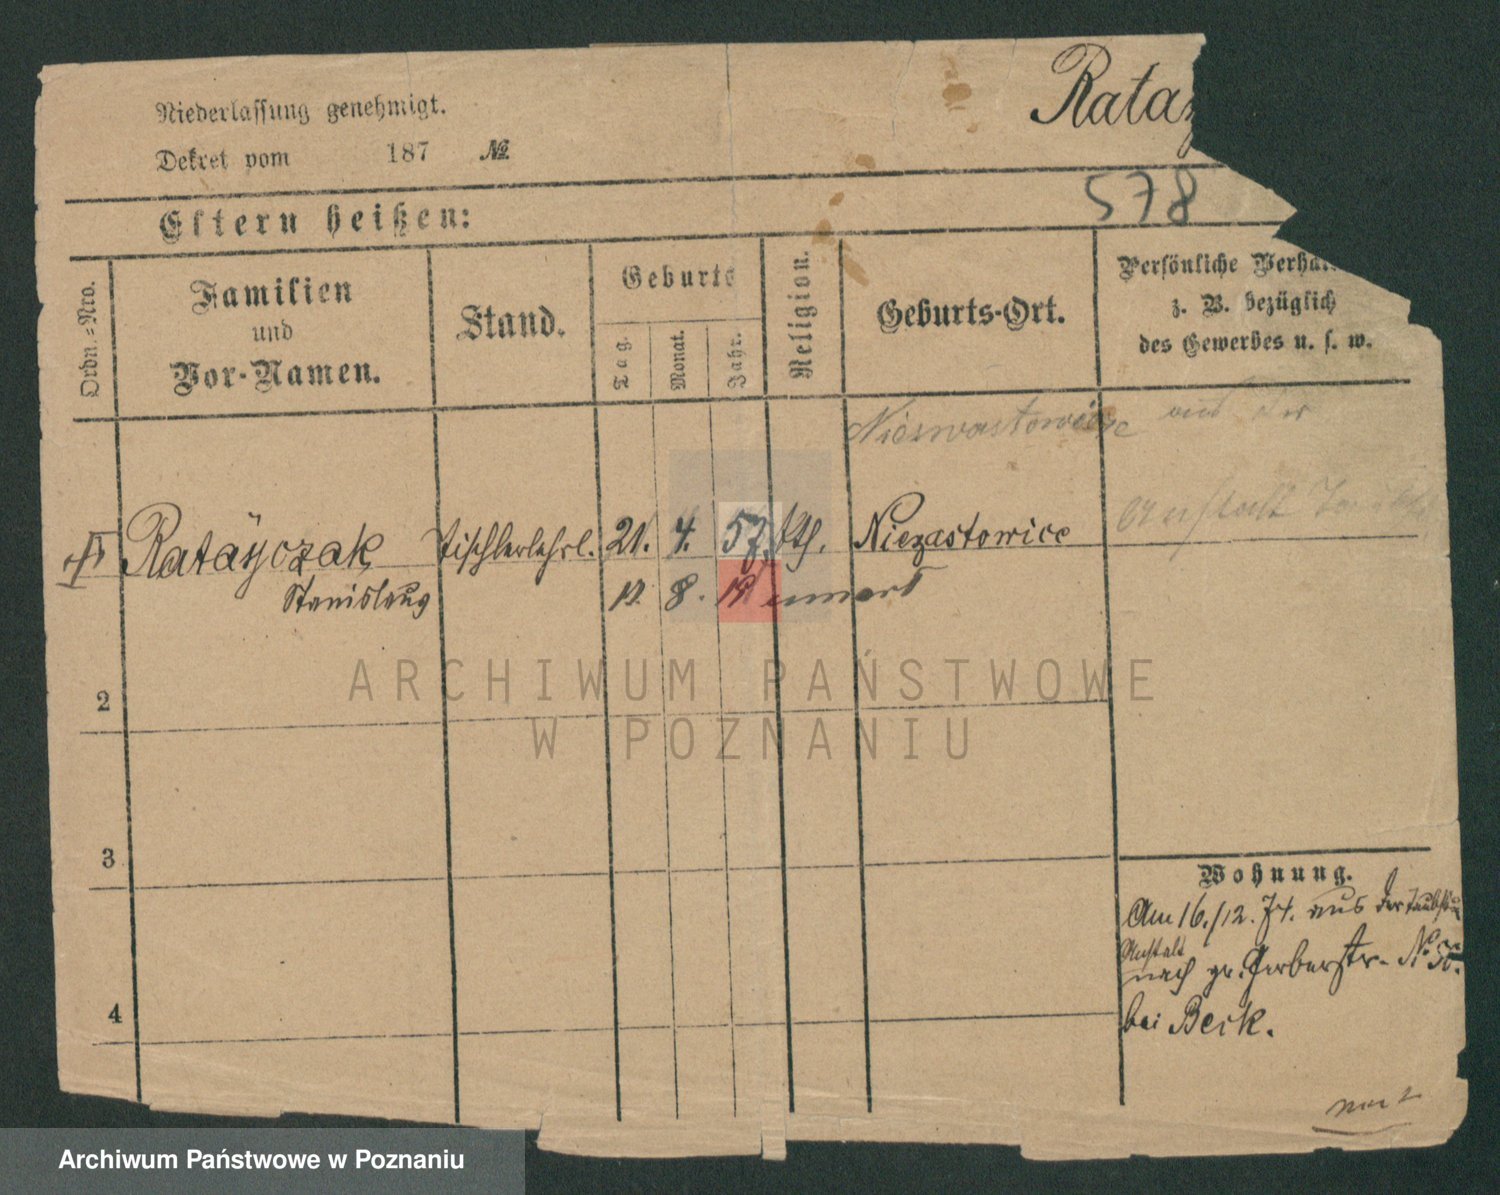 Niederlassung genehmigt.
Dekret vom 187 №
Rataj
578
Eltern heißen:
Ordn.-Nro.
Familien
und
Vor-Namen.
Stand.
Geburts
Tag.
Monat.
Jahr.
Religion.
Geburts-Ort.
Persönliche Verhält
z. B. bezüglich
des Gewerbes u. s. w.
aus der
Anstalt
Ratayczak Tischlerlehrl. 21. 4. 57. kth. Niezastowice
Stanislaus 12. 8.
2
3
4
Wohnung.
Am 16./12. 74. aus der Taubst
Anstalt
nach gr. Gerberstr. No
bei Beck.
ARCHIWUM PAŃSTWOWE
W POZNANIU
Archiwum Państwowe w Poznaniu